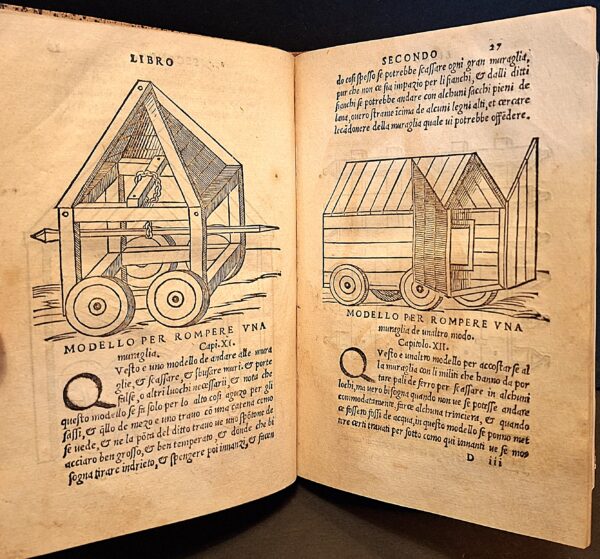 LIBRO
MODELLO PER ROMPERE VNA
muraglia. Capi. XI.
Questo e uno modello de andare alle mura
glie, & scassare, & sbusare muri, & porte
false, o altri luochi necessarii, & nota che
questo modello se fa solo per lo alto cosi aguzo per gli
sassi, & q̃llo de mezo e uno trauo cõ una catena como
se vede, & ne la põta del ditto trauo ue uno spõtone de
acciaro ben grosso, & ben temperato, & donde che bi
sogna tirare indrieto, & spengere poi innanzi, & facen
SECONDO 27
do cosi spesso se potrebbe scassare ogni gran muraglia,
pur che non ce sia impazio per li fianchi, & dalli ditti
fianchi se potrebbe andare con alchuni sacchi pieni de
lana, ouero strame ĩcima de alcuni legni alti, et cercare
lecãdonere della muraglia quale ui potrebbe offẽdere.
MODELLO PER ROMPERE VNA
muraglia de unaltro modo.
Capitolo. XII.
Questo e unaltro modello per accostarse al
la muraglia con li militi che hanno da por
ture pali de ferro per scassare in alchuni
lochi, ma vero bisogna quando non ue se posse andare
commodatamente, farce alchuna trinciera, & quando
ce fossero fussi de acqua, in questo modello se ponno met
tere certi trauati per sotto como qui innanti ve se mos
D iii